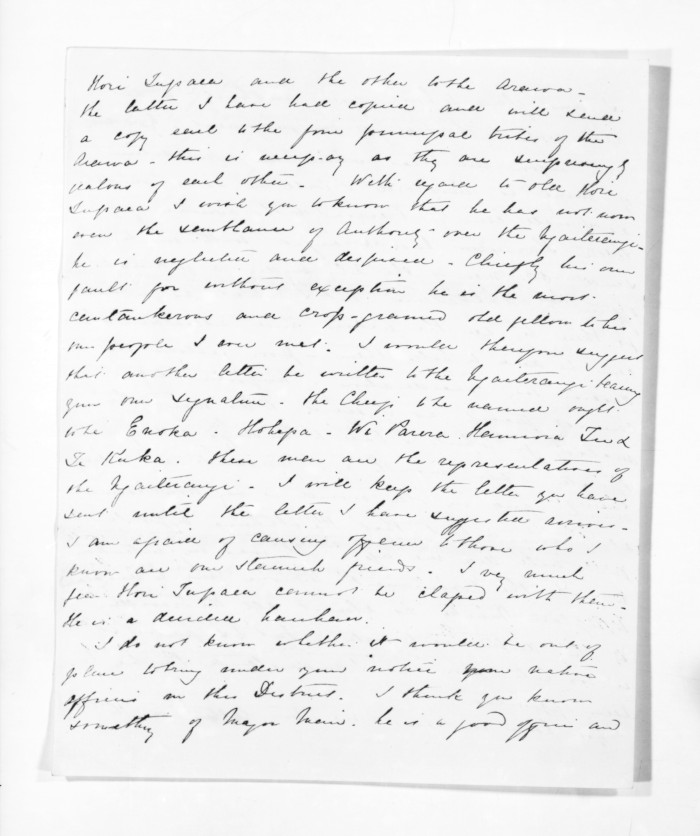 Hori Tupaea and the other to the Arawa -
the latter I have had copied and will send
a copy each to the four principal tribes of the
Arawa - this is necessary as they are surprisingly
jealous of each other - With regard to old Hori
Tupaea I wish you to know that he has not now
even the semblance of Authority over the Ngaiterangi -
he is neglected and despised - Chiefly his own
fault for without exception he is the most
cantankerous and cross-grained old fellow to his
own people I ever met. I would therefore suggest
that another letter be written to the Ngaiterangi bearing
your own signature - the Chiefs to be named ought
to be Enoka - Hohepa - Wi Parera Hamiora Tu &
Te Kuka. these men are the representatives of
the Ngaiterangi - I will keep the letter you have
sent until the letter I have suggested arrives -
I am afraid of causing offence to those who I
know are our staunch friends. I very much
fear Hori Tupaea cannot be classed with them -
He is a decided hauhau.
I do not know whether it would be out of
place to bring under your notice native
officers in this District. I think you know
something of Major Mair. he is a good officer and